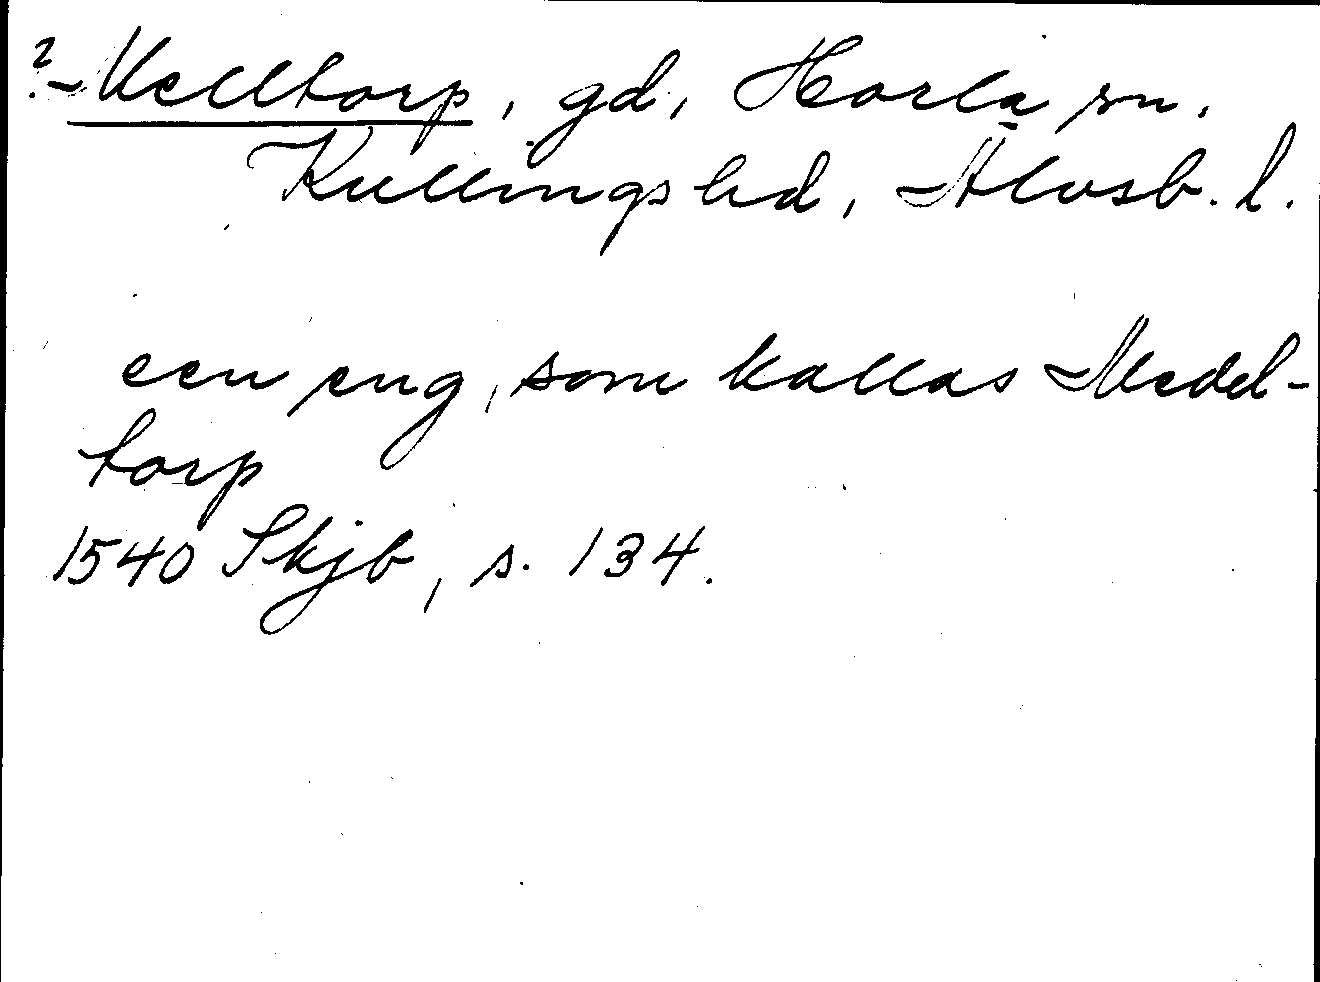 ? Melltorp, gd, Horla sn,
Kullings hd, Älvsb. l.
een eng, som kallas Medel-
torp
1540 Skjb, s. 134.